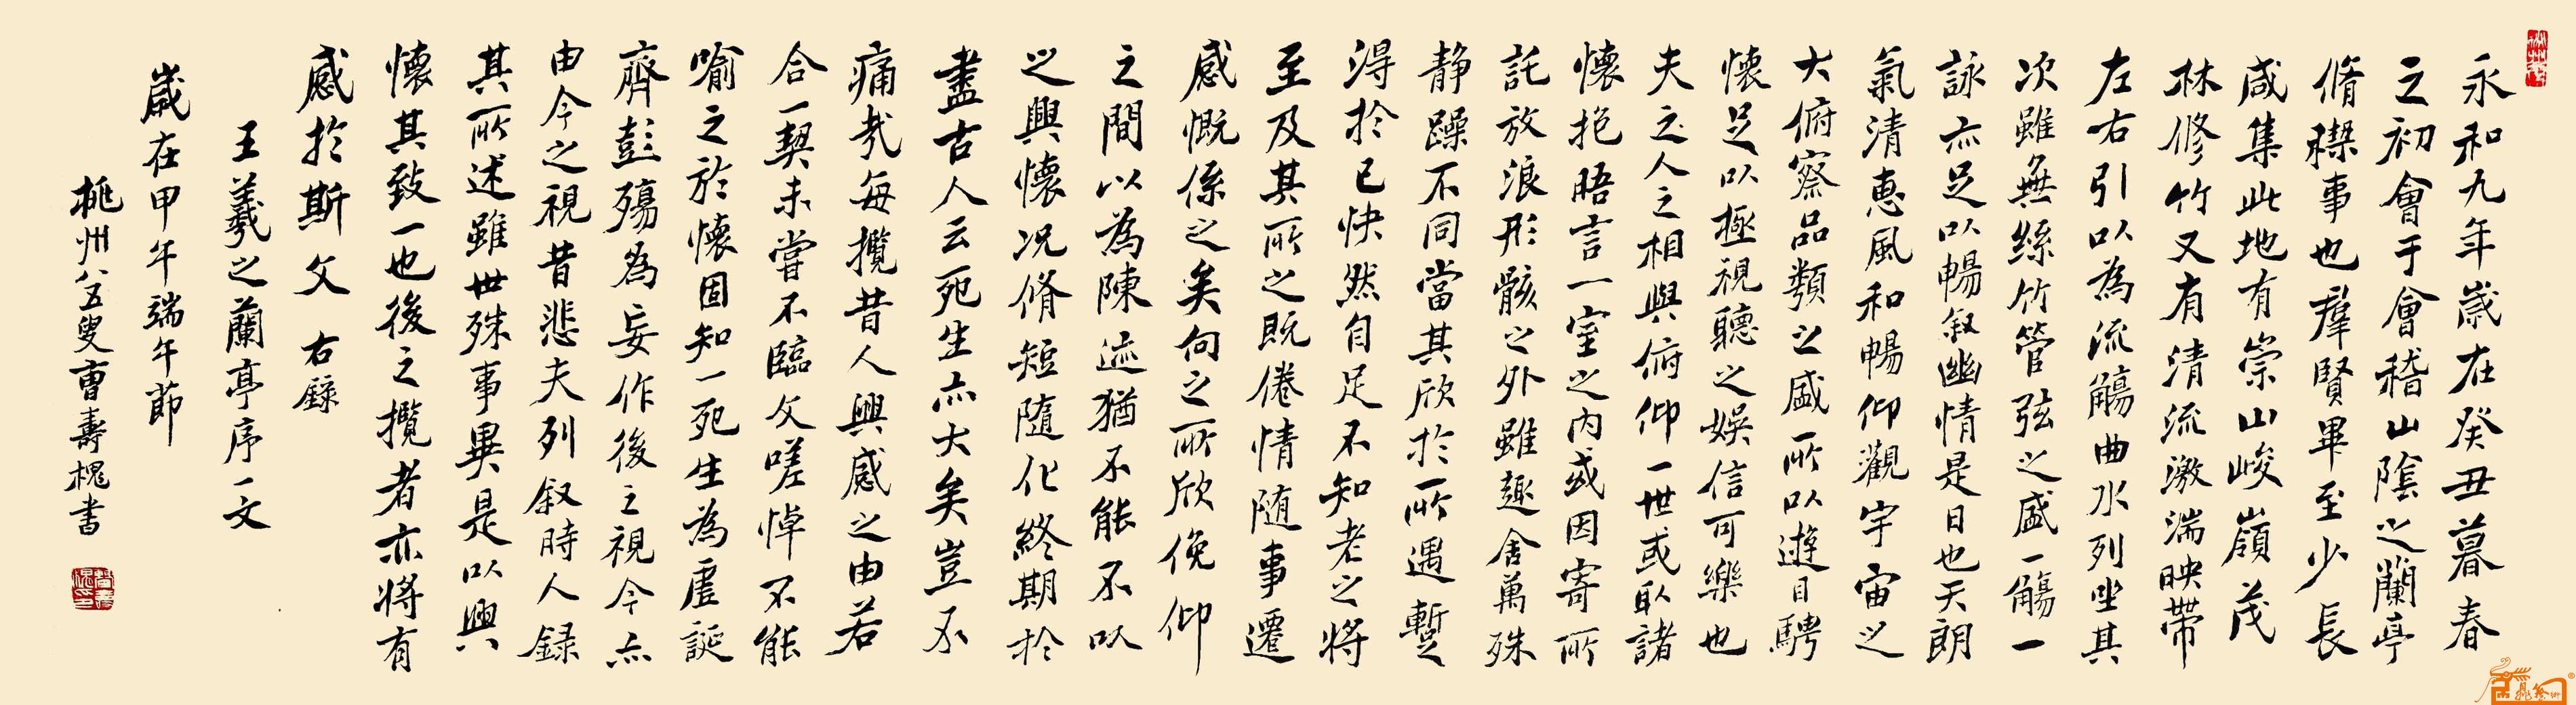 永和九年歲在癸丑暮春
之初會于會稽山陰之蘭亭
脩稧事也群賢畢至少長
咸集此地有崇山峻嶺茂
林修竹又有清流激湍映帶
左右引以為流觴曲水列坐其
次雖無絲竹管弦之盛一觴一
詠亦足以暢叙幽情是日也天朗
氣清惠風和暢仰觀宇宙之
大俯察品類之盛所以遊目騁
懷足以極視聽之娛信可樂也
夫之人之相與俯仰一世或取諸
懷抱晤言一室之内或因寄所
託放浪形骸之外雖趣舍萬殊
静躁不同當其欣於所遇暫
得於己快然自足不知老之將
至及其所之既倦情随事遷
感慨係之矣向之所欣俛仰
之間以為陳迹猶不能不以
之興懷況脩短隨化終期於
盡古人云死生亦大矣豈不
痛哉每攬昔人興感之由若
合一契未嘗不臨文嗟悼不能
喻之於懷固知一死生為虛誕
齊彭殤為妄作後之視今亦
由今之視昔悲夫列叙時人録
其所述雖世殊事異是以興
懷其致一也後之攬者亦將有
感於斯文 右錄
王羲之蘭亭序一文
歲在甲午年端午節
桃州八五叟曹壽槐书